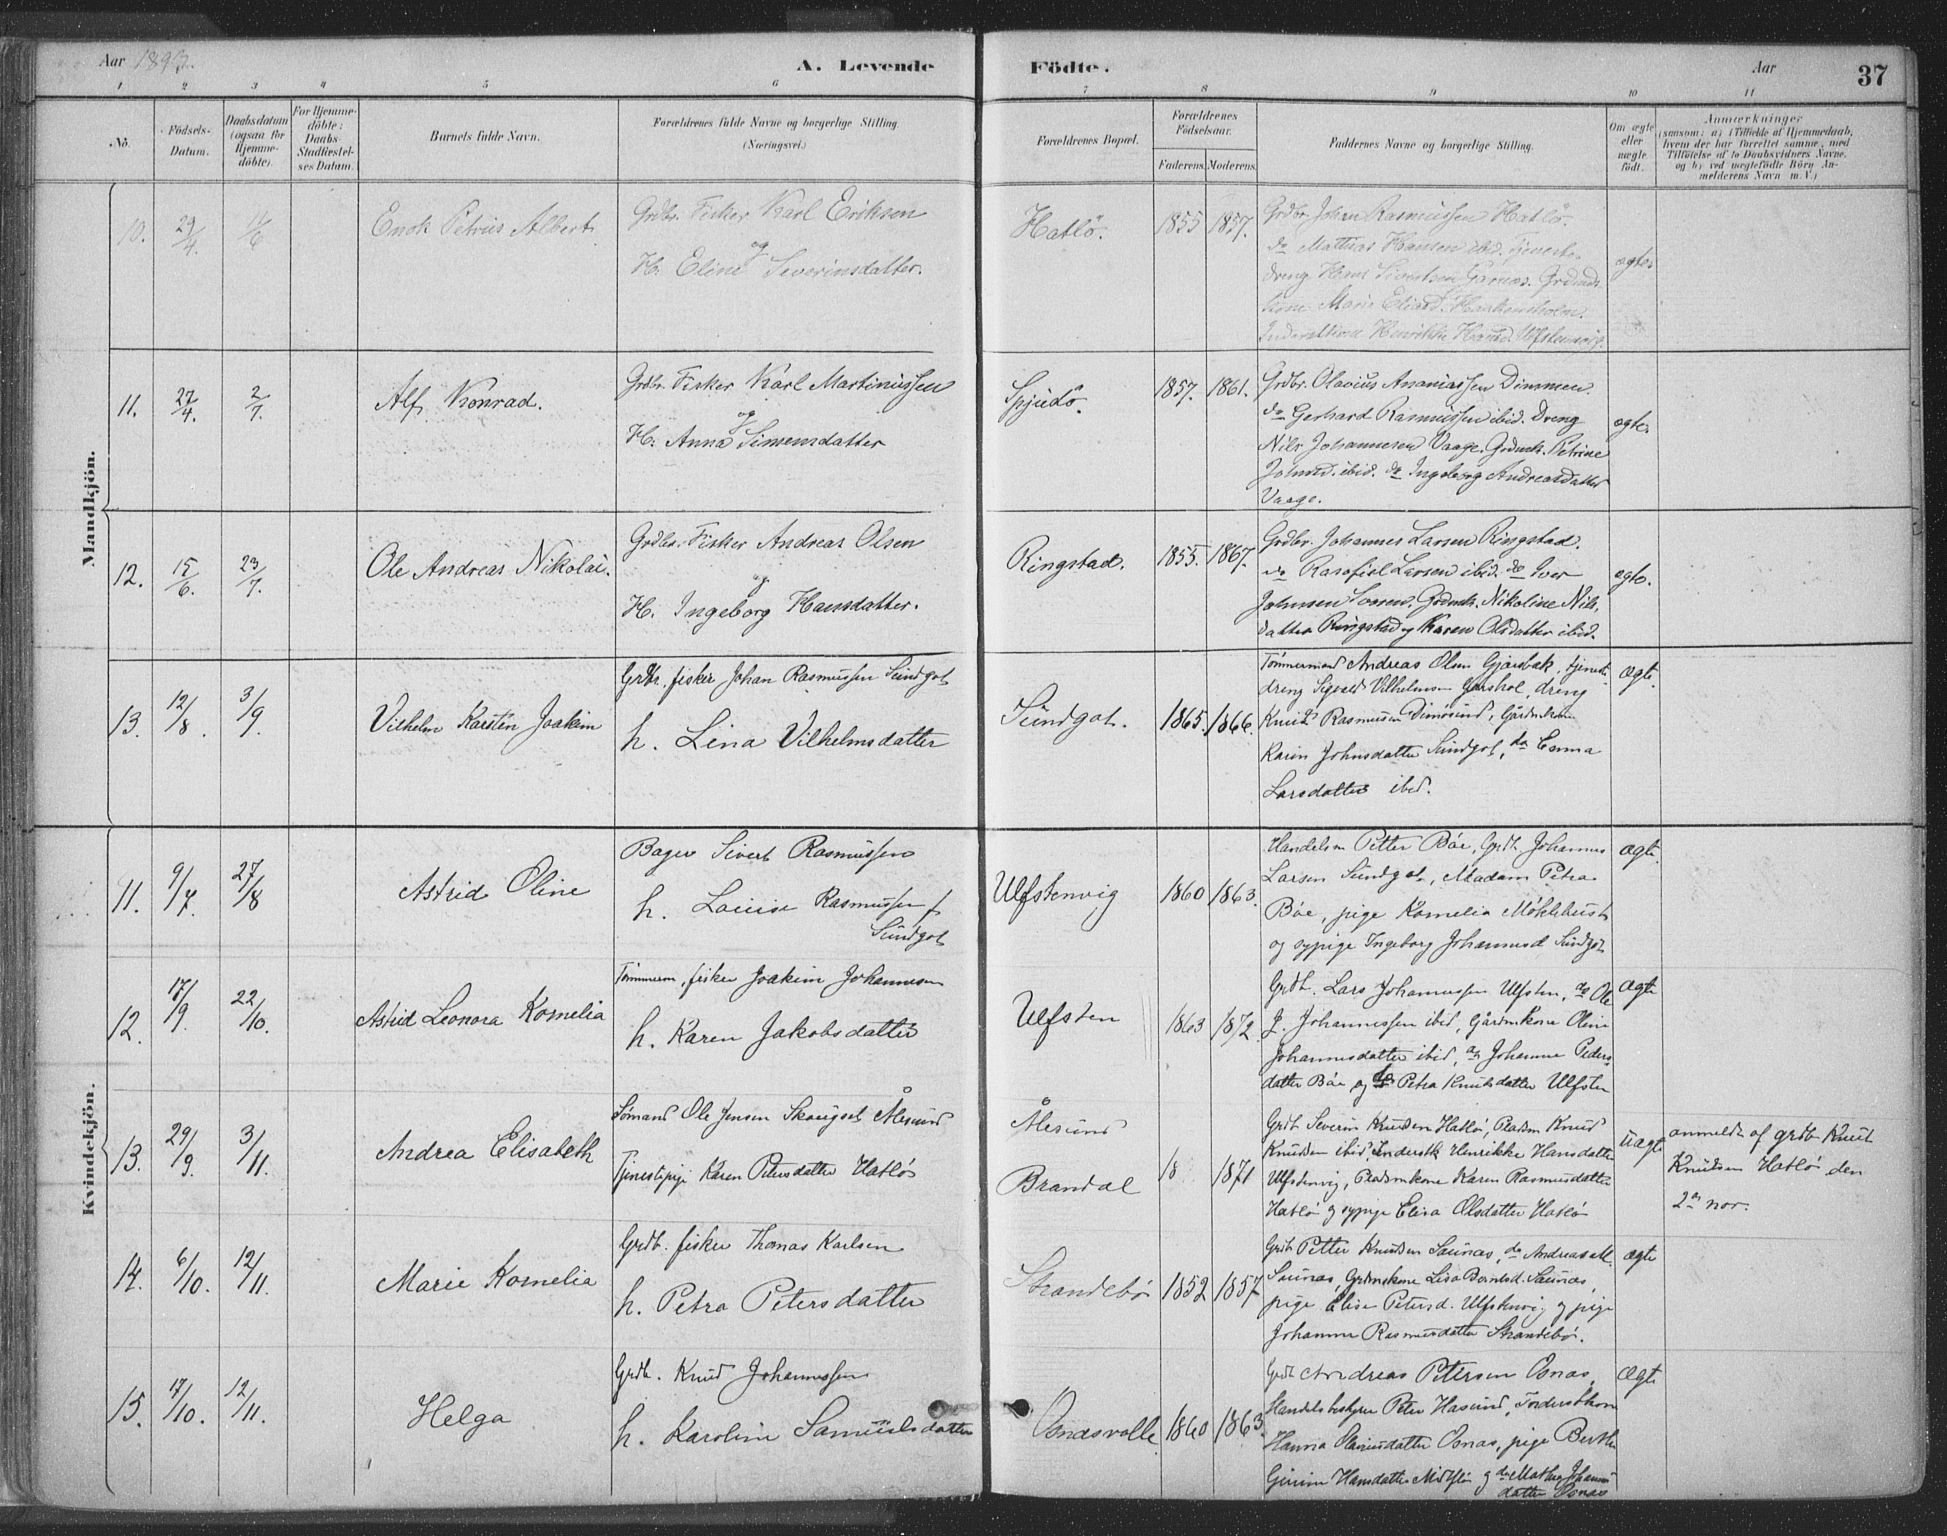 Aar 1893.
A. Levende
Födte.
Aar
37
1 2 3 4 5 6 7 8 9 10 11
No.
Födsels-Datum.
Daabsdatum (ogsaa for Hjemme-döbte).
For Hjemme-döbte: Daabs Stadfæstel-ses Datum.
Barnets fulde Navn.
Forældrenes fulde Navne og borgerlige Stilling. (Næringsvei.)
Forældrenes Bopæl.
Forældrenes Födselsaar.
Faderens. Moderens.
Faddernes Navne og borgerlige Stilling.
Om ægte eller uægte födt.
Anmærkninger
(saasom: a) i Tilfælde af Hjemmedaab, hvem der har forrettet samme, med Tilföielse af to Daabsvidners Navne, og b) ved uægtefödte Börn An-melderens Navn m. V.)
Mandkjön.
10. 29/4. 11/6 Enok Petrus Albert.
Grdbr. Fisker Karl Eriksen
og
H. Eline Severinsdatter.
Hatlö. 1855 1857.
Grdbr. Johan Rasmussen Hatlö.
do Mathias Hansen ibid. Tjeneste-
dreng Hans Sivertsen Garnæs. Grdmds
kone Marie Eliasd. Haakonsholm.
Inderstkone Henrikke Hansd. Ulfstenvig.
ægte.
11. 27/4. 2/7. Alf Konrad.
Grdbr. Fisker Karl Martinussen
og
H. Anna Simensdatter
Spjudö. 1857. 1861.
Grdbr. Olavius Ananiassen Dimmen.
do Gerhard Rasmussen ibid. Dreng
Nils Johannesen Vaage. Grdmk. Petrine
Johnsd. ibid. do Ingeborg Andreasdatter
Vaage.
ægte.
12. 15/6. 23/7. Ole Andreas Nikolai.
Grdbr. Fisker Andreas Olsen
og
H. Ingeborg Hansdatter.
Ringstad. 1855. 1867.
Grdbr. Johannes Larsen Ringstad.
do Rasmus Larsen ibid. do Iver
Johnsen. Grdmk. Nikoline Nils-
datter Ringstad og Karen Olsdatter ibid.
ægte.
13. 12/8. 3/9. Vilhelm Karsten Joakim
Grdbr. fisker Johan Rasmussen Sundgot
h. Lina Vilhelmsdatter
Sundgot. 1865. 1866.
Tømmermand Andreas Olsen Gjærsbak, tjeneste-
dreng Sigvald Vilhelmsen Gjærshol, dreng
Knut Rasmussen Dimøsund, Gårdmkone
Karin Johnsdatter Sundgot, do Emma
Larsdatter ibid.
ægte.
Kvindekjön.
11. 9/7. 27/8 Astrid Oline
Bager Sivert Rasmussen
h. Louise Rasmussen f
Sundgot
Ulfstenvig 1860 1863.
Handelsm Petter Bøe, Grdb. Johannes
Larsen Sundgot, Madam Petra
Bøe, pige Kornelia Møklebust
og sypige Ingeborg Johannesd Sundgot
ægte.
12. 17/9. 22/10. Astrid Leonora Kornelia
Tømmerm, fisker Joakim Johannesen
h. Karen Jakobsdatter
Ulfsten 1863 1872.
Grdb. Lars Johannessen Ulfsten, do Ole
J. Johannessen ibid, Gårdmkone Oline
Johannesdatter ibid, do Johanne Peders-
datter Bøe og do Petra Knutsdatter Ulfsten
ægte
13. 29/9. 3/11. Andrea Elisabeth
Sømand Ole Jensen Skougset Ålesund
Tjenestepige Karen Petersdatter Hatlø
Ålesund
Brandal 18 1871
Grdb Severin Knudsen Hatlø, Pladsm Knud
Knudsen ibid, Inderstk Henrikke Hansdatter
Ulfstenvig, Pladsmkone Karen Rasmusdatter
Hatlø og sypige Elisa Olsdatter Hatlø
uægte
anmeldt af grdb Knut
Knudsen Hatlø den
2den nov.
14. 6/10. 12/11. Marie Kornelia
Grdb. fisker Thomas Karlsen
h. Petra Petersdatter
Strandebø 1852 1857
Grdb Petter Knudsen Saunæs, do Andreas M.
Saunæs, Grdmkone Lisa Berntsd. Saunæs,
pige Elise Petersd. Ulfstenvig og pige
Johanne Rasmusdatter Strandebø.
ægte
15. 17/10. 12/11. Helga
Grdb. Knud Johannessen
h. Karoline Samuelsdatter
Osnasvolle 1860 1863.
Grdb Andreas Pettersen Osnas,
Handelsbestyrer Peter Hasund,
Hanna Olausdatter Osnas, pige Berthe
Hansdatter og do Johannes-
datter Osnas
ægte